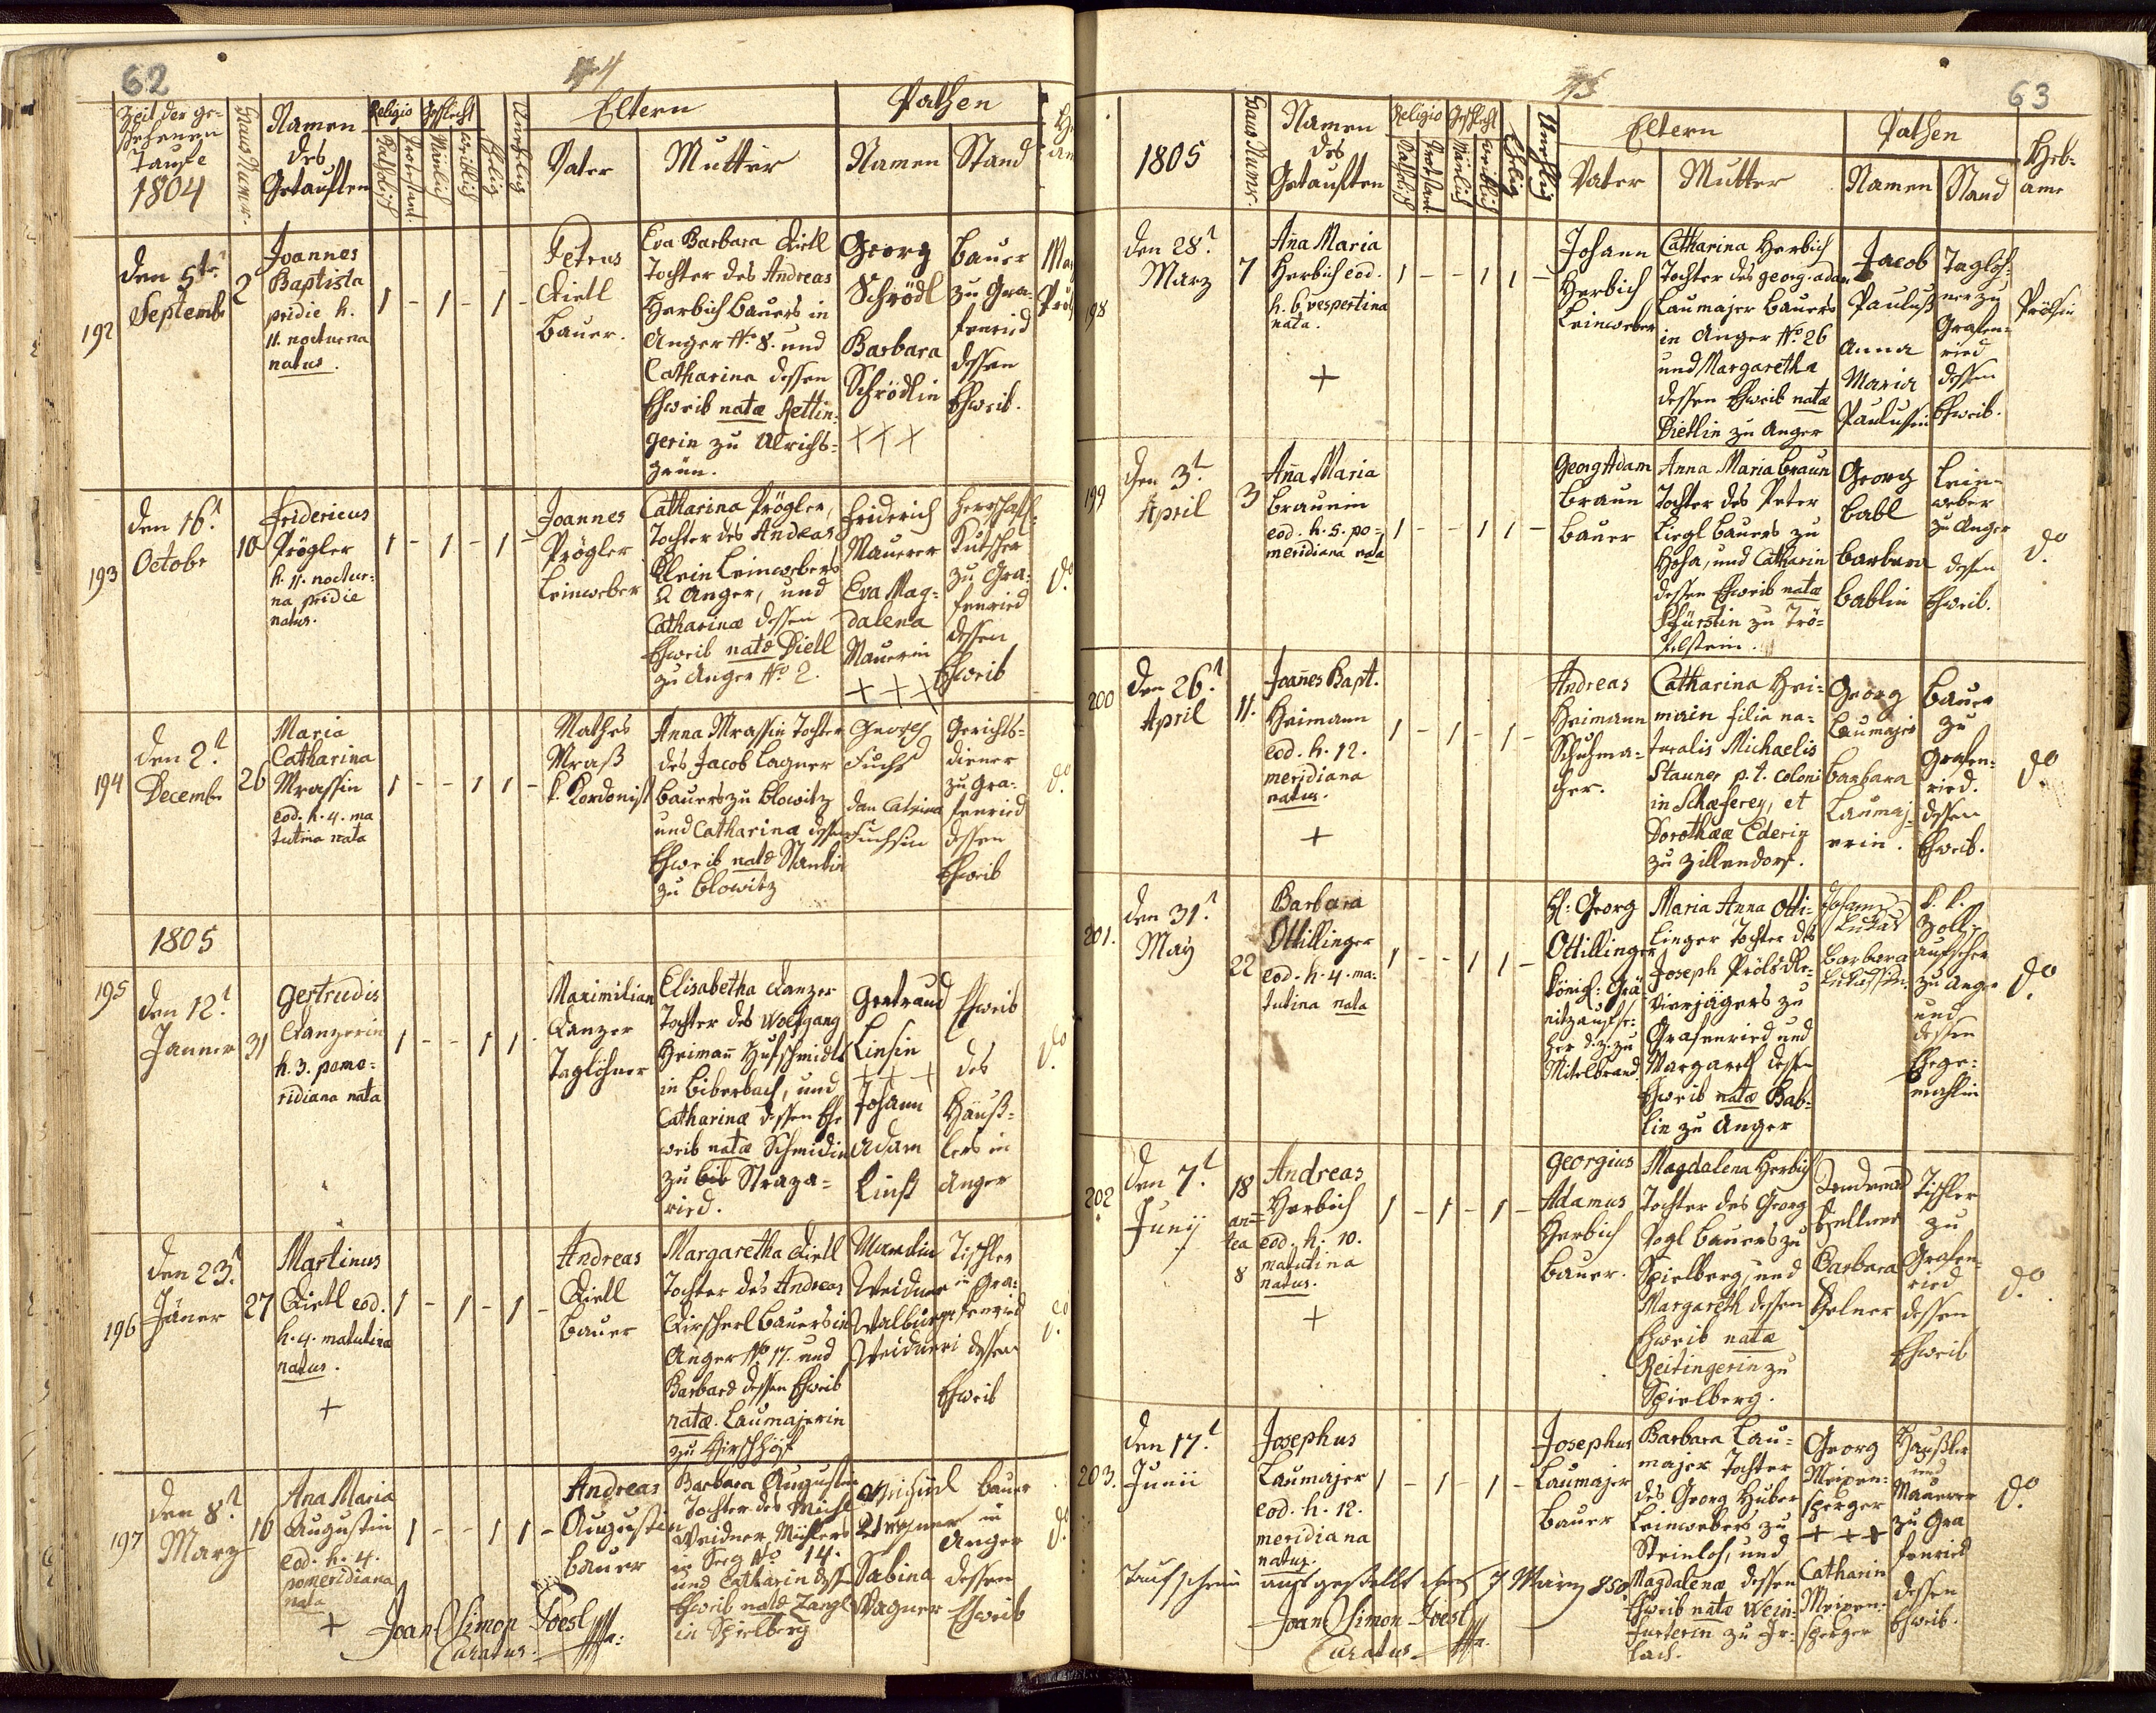 62
Zeit der ge-
schehenen
Taufe
1804
Haus Numer.
Namen
des
Getauften
Religio
Katholisch
Protestant.
Geschlecht
Mänlich
Weiblich
Ehelig
Unehelig
Eltern
Vater
Mutter
Pathen
Namen
Stand
192
den 5te
Septemb
2
Joannes
Baptista
pridie h.
11. nocturna
natus.
1 - 1 - 1 -
Petrus
Dietl
Bauer.
Eva Barbara Dietl
Tochter des Andreas
Herbich Bauers in
Anger No. 8. und
Catharina dessen
Eheweib natæ Rettin-
gerin zu Ulrichs-
grün.
Georg
Schrödl
Barbara
Schrödlin
+++
Bauer
zu Gra-
fenried
dessen
Eheweib.
193
den 16t
Octobr
10
Fridericus
Prögler
h. 11. noctur-
na pridie
natus.
1 - 1 - 1 -
Joannes
Prögler
Leinweber
Catharina Prögler,
Tochter des Andreas
Klein Leinwebers
Anger, und
Catharinæ dessen
Eheweib natæ Dietl
zu Anger No. 2.
Friderich
Mauerer
Eva Mag-
dalena
Mauerin
+++
Herrschaft-
Kutscher
zu Gra-
fenried
dessen
Eheweib
do
194
den 2t
Decembr
26
Maria
Catharina
Mrassin
eod. h. 4. ma
tutina nata
1 - - 1 1 -
Mathes
Mraß
k. Kordonist
Anna Mrassin Tochter
des Jacob Lagner
Bauers zu Blowitz
und Catharina dessen
Eheweib natæ Stankin
zu Blowitz
Georg
Fuchs
Catrina
Fuchsin
Gerichts-
diener
zu Gra-
fenried
dessen
Eheweib
do
1805
195
den 12t
Janner
31
Gertrudis
Kanzerin
h. 3. pome-
ridiana nata
1 - - 1 1 -
Maximilian
Kanzer
Taglöhner
Elisabetha Kanzer
Tochter des Wolfgang
Heiman Hufschmidts
in Biberbach, und
Catharinæ dessen Ehe
weib natæ Schmidin
zu Straza-
ried.
Gertraud
Linsin
+++
Johann
Adam
Linß
Eheweib
des
Häuß-
lers in
Anger
do
196
den 23t
Jäner
27
Martinus
Dietl eod.
h. 4. matutina
natus.
+
1 - 1 - 1 -
Andreas
Dietl
Bauer
Margaretha Dietl
Tochter des Andreas
Kirscherl Bauers in
Anger No 17. und
Barbara dessen Eheweib
natæ Laumajerin
zu Hirschhöf
Martin
Weidner
Walburga
Weidneri
Tischler
in Gra-
fenried
dessen
Eheweib
do
197
den 8t
Marz
10
Ana Maria
Augustin
eod. h. 4.
pomeridiana
nata
+
1 - - 1 1 -
Andreas
Augustin
Bauer
Barbara Augustin
Tochter des Michl
Weidner Müllers
in Seeg No 14.
und Catharin dessen
Eheweib natæ Zangl
in Spielberg
Michael
Wagner
Sabina
Wagner
Bauer
in
Anger
dessen
Eheweib
do
Joan Simon Poesl
Curatus.
63
1805
Haus Numer.
Namen
des
Getauften
Religio
Katholisch
Protestant
Geschlecht
Mänlich
Weiblich
Ehelig
Unehelig
Eltern
Vater
Mutter
Pathen
Namen
Stand
Heb-
ame
198
den 28t
Marz
7
Aña Maria
Herbich eod.
h. 6. vespertina
nata.
+
1 - - 1 1 -
Johann
Herbich
Leinweber
Catharina Herbich
Tochter des Georg Adam
Laumajer Bauers
in Anger No. 26
und Margaretha
dessen Eheweib natæ
Dietlin zu Anger
Jacob
Pauluß
Anna
Maria
Paulusin
Taglöh-
ner zu
Grafen-
ried
dessen
Eheweib.
Prölsin
199
den 3t
April
3
Aña Maria
Braunin
eod. h. 5. po-
meridiana nata
1 - - 1 1 -
Georg Adam
Braun
Bauer
Anna Maria Braun
Tochter des Peter
Liegl Bauers zu
Hoha, und Catharin
dessen Eheweib natæ
zu Trö-
Georg
Babl
Barbara
Bablin
Lein-
weber
zu Anger
dessen
Eheweib.
do
200
den 26t
April
11.
Joañes Bapt.
Heimann
eod. h. 12.
meridiana
natus.
+
1 - 1 - 1 -
Andreas
Heimann
Schuhma-
cher.
Catharina Hei-
main filia na-
turalis Michaelis
Stauner p. t. coloni
in Schæferey, et
Dorotheæ Ederin
zu Zillendorf.
Georg
Laumajer
Barbara
Laumaj-
erin.
Bauer
zu
Grafen-
ried.
dessen
Eheweib.
do
201.
den 31t
May
22
Barbara
Ottillinger
eod. h. 4. ma-
tutina nata
1 - - 1 1 -
H: Georg
Ottillinger
Königl: Grä-
nitzaufse-
her d. z. zu
Mitelbrand.
Maria Anna Otti-
linger Tochter des
Joseph Pröls Re-
vierjägers zu
Grafenried und
Margareth dessen
Eheweib natæ Bab-
lin zu Anger
Johann
Lukas
Barbara
Lukassin
k. k.
Zoll-
aufseher
zu Anger
und
dessen
Ehege-
mahlin
do
202
den 7t
Junij
18
an-
tea
8
Andreas
Herbich
eod. h. 10.
matutina
natus.
+
1 - 1 - 1 -
Georgius
Adamus
Herbich
Bauer.
Magdalena Herbich
Tochter des Georg
Vogl Bauers zu
Spielberg, und
Margareth dessen
Eheweib natæ
Reitingerin zu
Spielberg.
Barbara
Tischler
zu
Grafen-
ried
dessen
Eheweib
do
203.
den 17t
Junii
Josephus
Laumajer
eod. h. 12.
meridiana
natus.
1 - 1 - 1 -
Josephus
Laumajer
Bauer
Barbara Lau-
majer Tochter
des Georg Huber
Leinwebers zu
Steinloh, und
Magdalenæ dessen
Eheweib natæ Wein-
furterin zu Ir-
lach.
Georg
Meixen-
sperger
+++
Catharin
Meixen-
sperger
Häußler
und
Mauerer
zu Gra
fenried
dessen
Eheweib.
do
Taufschein ausgestellt den 7 März 850
Joan Simon Poesl
Curatus